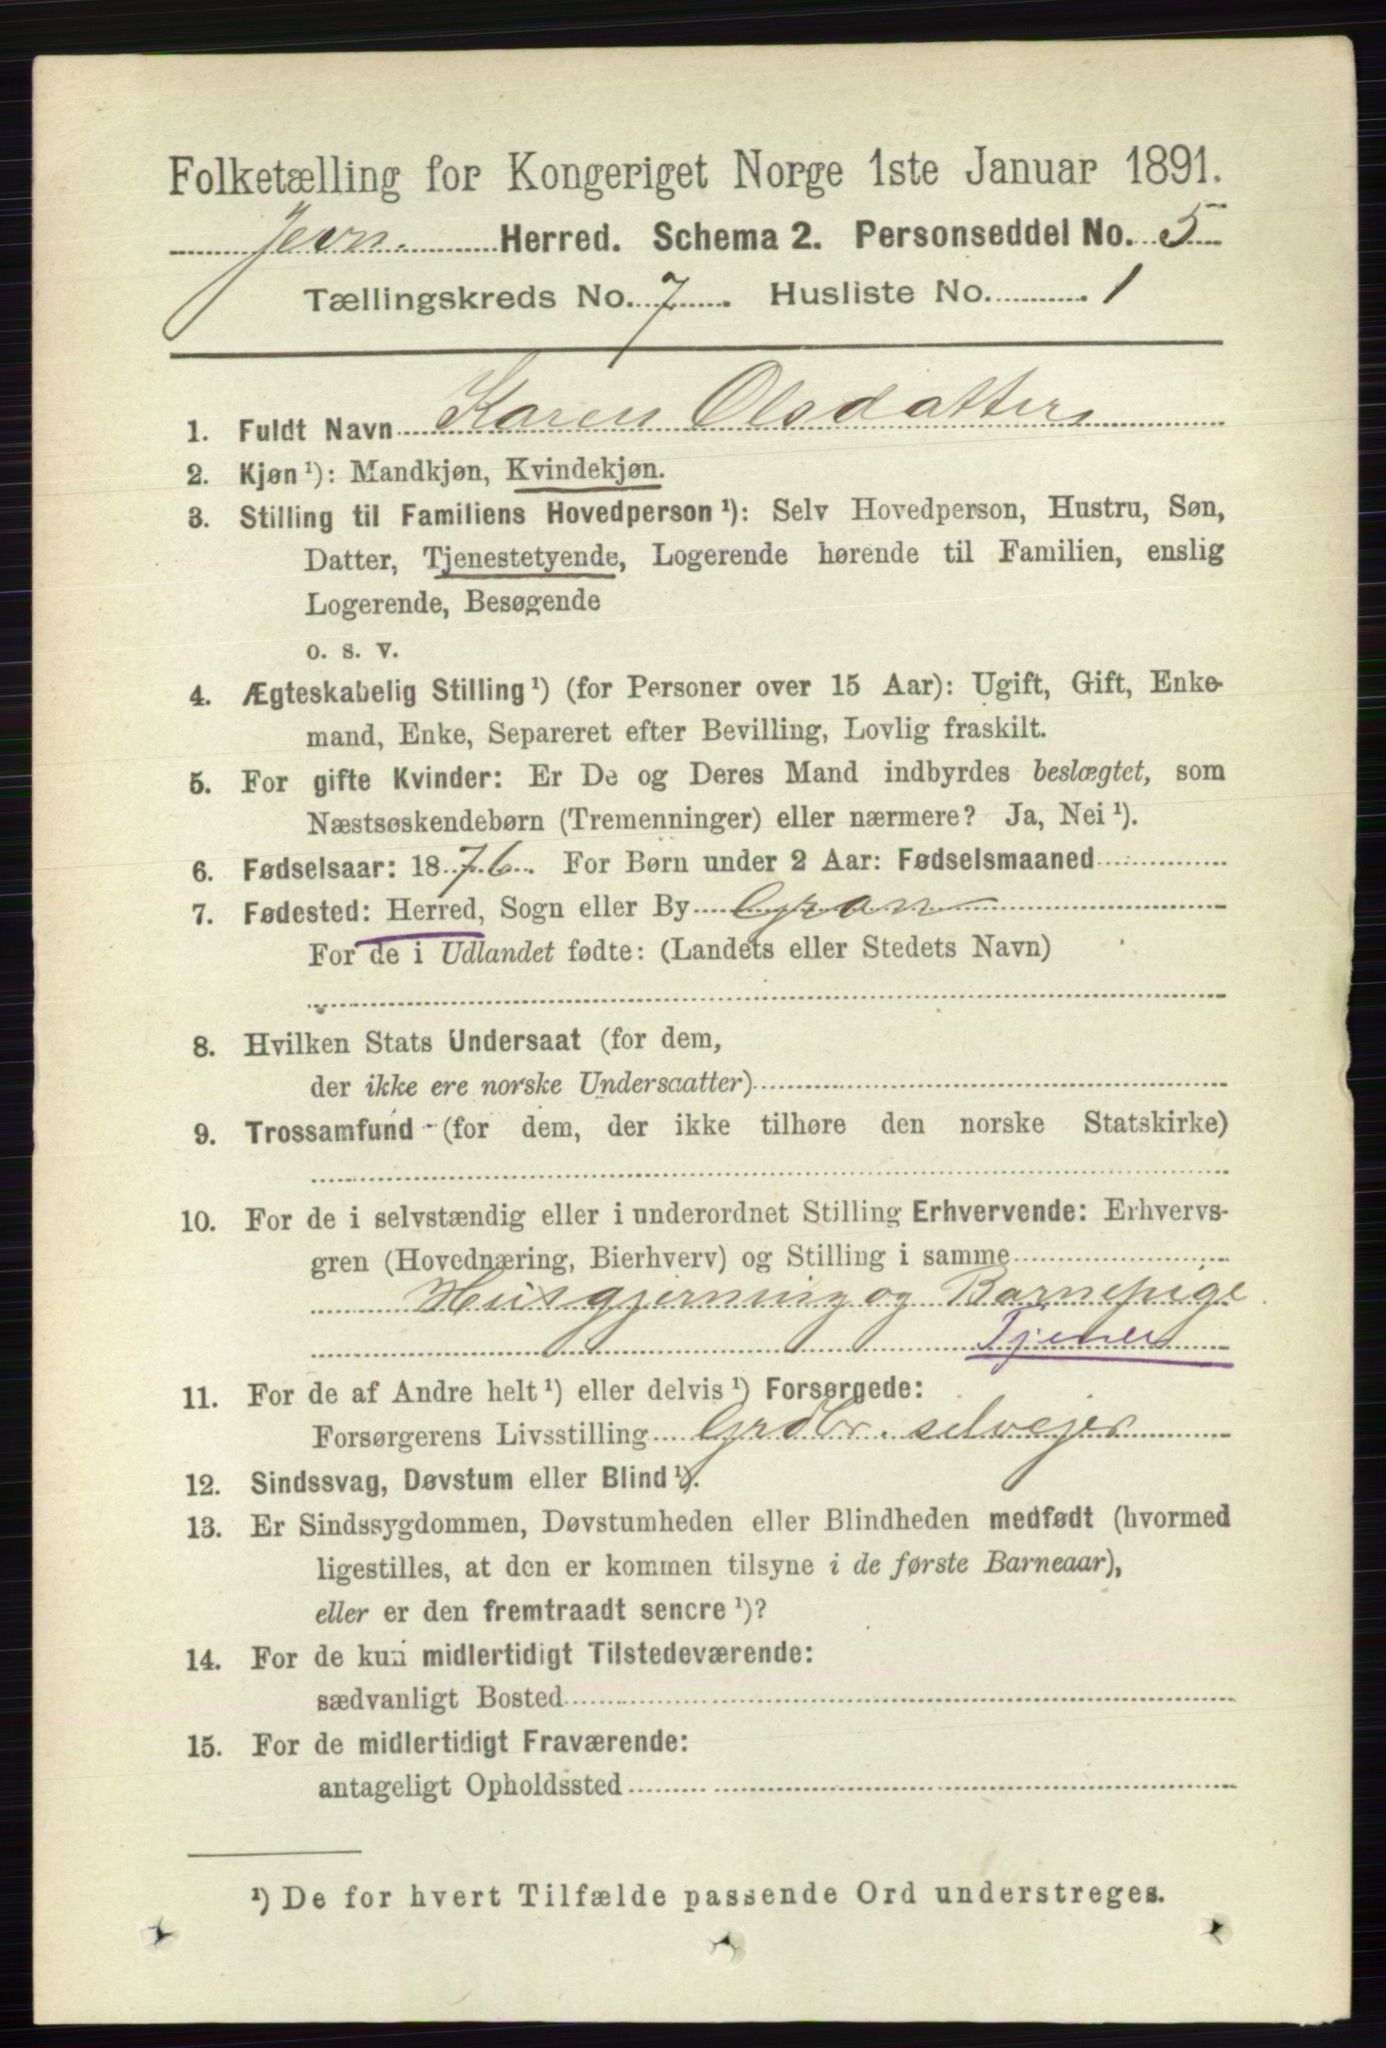 Folketælling for Kongeriget Norge 1ste Januar 1891.
Jevn. Herred. Schema 2. Personseddel No. 5
Tællingskreds No. 7. Husliste No. 1
1. Fuldt Navn Karen Olsdatter
2. Kjøn¹): Mandkjøn, Kvindekjøn.
3. Stilling til Familiens Hovedperson¹): Selv Hovedperson, Hustru, Søn,
Datter, Tjenestetyende, Logerende hørende til Familien, enslig
Logerende, Besøgende
o. s. v.
4. Ægteskabelig Stilling¹) (for Personer over 15 Aar): Ugift, Gift, Enke-
mand, Enke, Separeret efter Bevilling, Lovlig fraskilt.
5. For gifte Kvinder: Er De og Deres Mand indbyrdes beslægtet, som
Næstsøskendebørn (Tremenninger) eller nærmere? Ja, Nei¹).
6. Fødselsaar: 1876. For Børn under 2 Aar: Fødselsmaaned
7. Fødested: Herred, Sogn eller By Gran
For de i Udlandet fødte: (Landets eller Stedets Navn)
8. Hvilken Stats Undersaat (for dem,
der ikke ere norske Undersaatter)
9. Trossamfund (for dem, der ikke tilhøre den norske Statskirke)
10. For de i selvstændig eller i underordnet Stilling Erhvervende: Erhvervs-
gren (Hovednæring, Bierhverv) og Stilling i samme
Husgjerning og Barnepige
Tjener
11. For de af Andre helt¹) eller delvis¹) Forsørgede:
Forsørgerens Livsstilling Grdbr. selvejer
12. Sindssvag, Døvstum eller Blind¹).
13. Er Sindssygdommen, Døvstumheden eller Blindheden medfødt (hvormed
ligestilles, at den er kommen tilsyne i de første Barneaar),
eller er den fremtraadt senere¹)?
14. For de kun midlertidigt Tilstedeværende:
sædvanligt Bosted
15. For de midlertidigt Fraværende:
antageligt Opholdssted
¹) De for hvert Tilfælde passende Ord understreges.